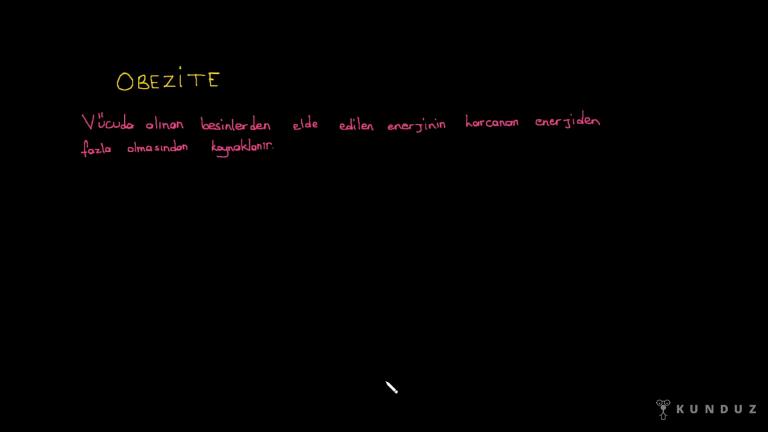 OBEZİTE
Vücuda alınan besinlerden elde edilen enerjinin harcanan enerjiden
fazla olmasından kaynaklanır.
KUNDUZ